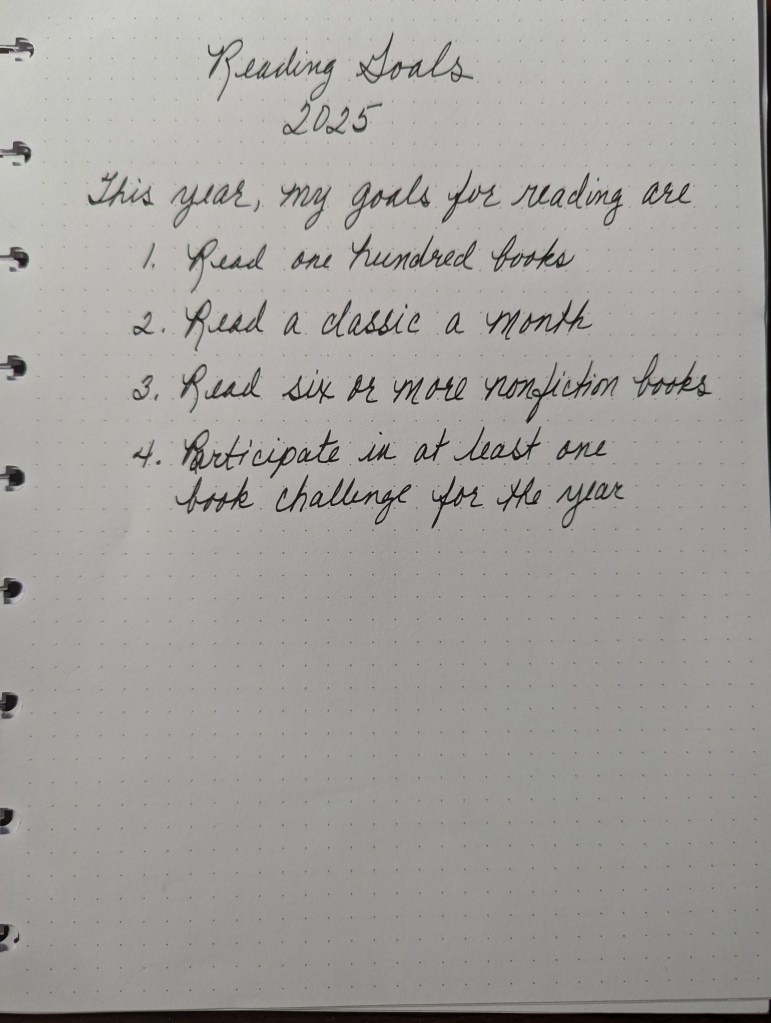 Reading Goals
2025
This year, my goals for reading are
1. Read one hundred books
2. Read a classic a month
3. Read six or more nonfiction books
4. Participate in at least one
book challenge for the year